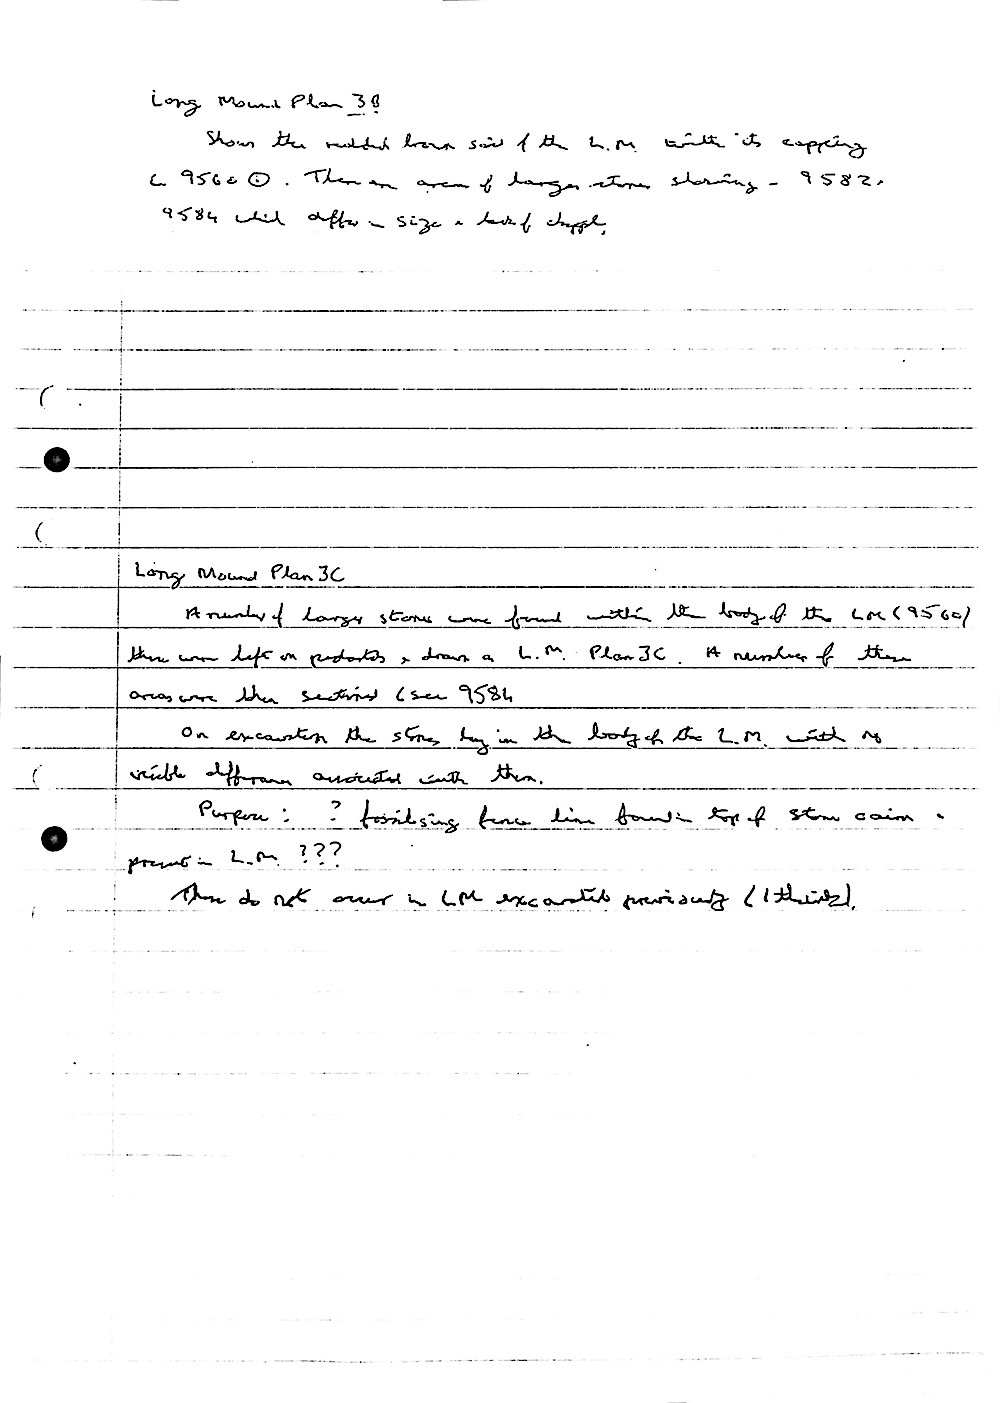 Long Mound Plan 3B
Shows the reddish brown soil of the L.M. with its capping
9560 ①. There are areas of larger stones showing - 9582,
9584 which differ in size &
Long Mound Plan 3C
A number of larger stones were found within the body of the LM (9560)
these were left on pedestals & drawn on L.M. Plan 3C. A number of these
areas were then sectioned (see 9584
On excavation the stones lay in the body of the L.M. with no
visible difference associated with them.
Purpose: ? fossilising fence line found in top of stone cairn &
present in L.M. ???
These do not occur in LM excavated previously (I think).